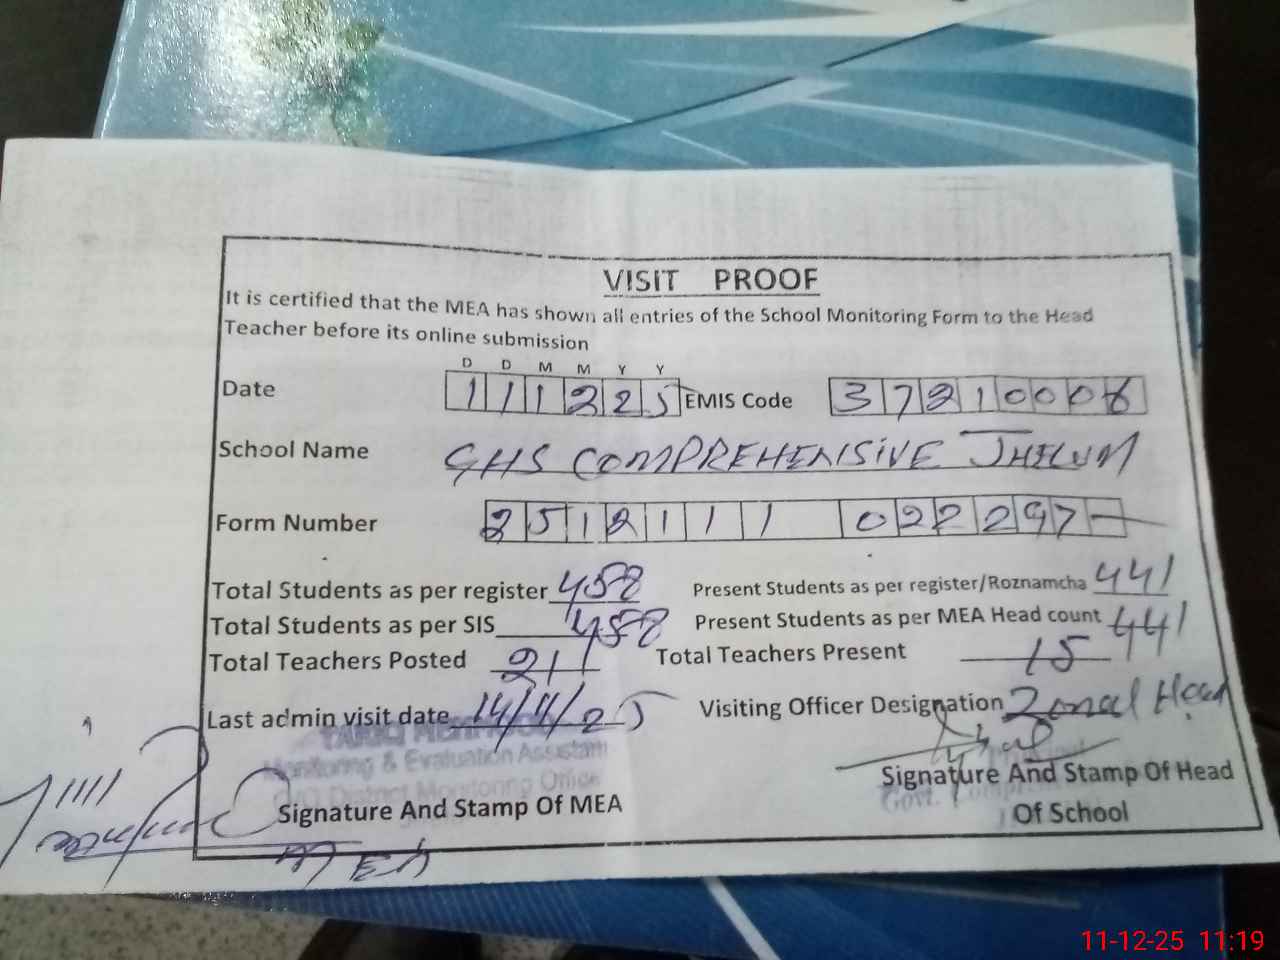 VISIT PROOF
It is certified that the MEA has shown all entries of the School Monitoring Form to the Head
Teacher before its online submission
D D M M Y Y
Date 1 1 1 2 2 5 EMIS Code 3 7 2 1 0 0 0 6
School Name GHS COMPREHENSIVE JHELUM
Form Number 2 5 1 2 1 1 1 0 2 2 2 9 7 -
Total Students as per register 458 Present Students as per register/Roznamcha 441
Total Students as per SIS 458 Present Students as per MEA Head count 441
Total Teachers Posted 21 Total Teachers Present 15
Last admin visit date 14/11/25 Visiting Officer Designation Zonal Head
TARIQ MEHMOOD
Monitoring & Evaluation Assistant
District Monitoring Office
Signature And Stamp Of MEA
Signature And Stamp Of Head
Govt.
Of School
11-12-25 11:19